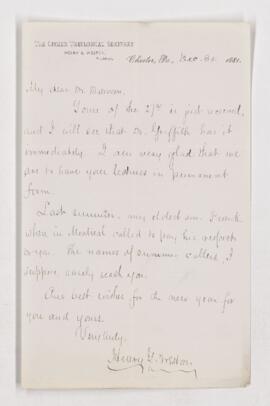 THE CROZER THEOLOGICAL SEMINARY
HENRY G. WESTON,
Chester, Pa., Dec. 30 1881.
My dear Dr. Dawson,
Yours of the 27th is just received,
and I will see that Dr. Griffith has it
immediately. I am very glad that we
are to have your lectures in permanent
form.
Last summer, my eldest son Frank
when in Montreal called to pay his respects
to you. The names of summer callers, I
suppose, rarely reach you.
Our best wishes for the new year for
you and yours.
Very truly,
Henry G. Weston